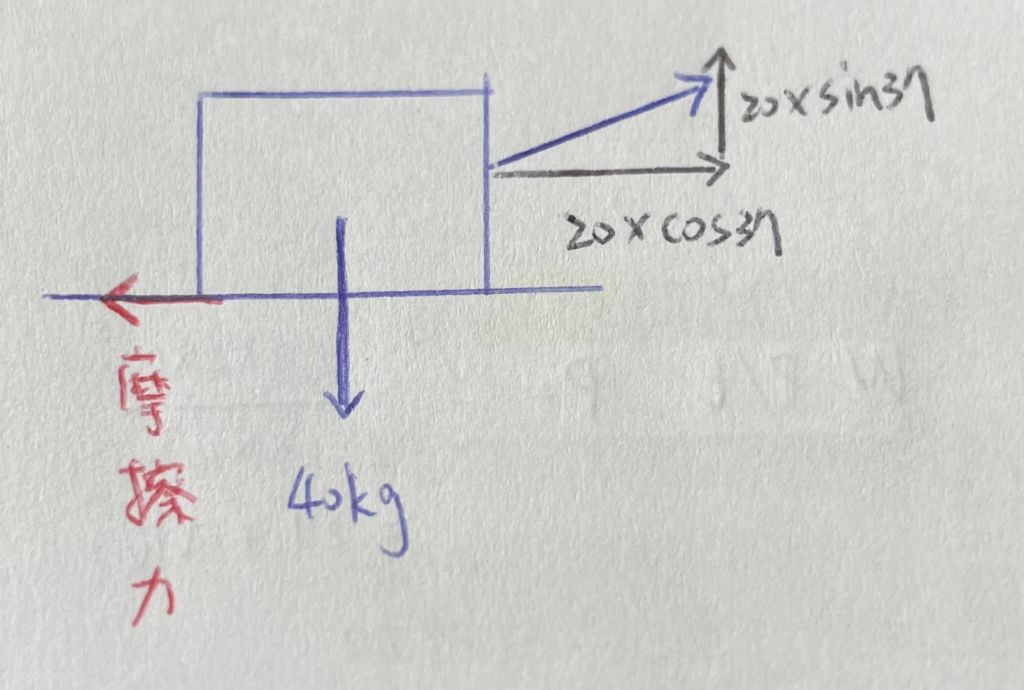 20×sin37
20×cos37
摩擦力
40kg